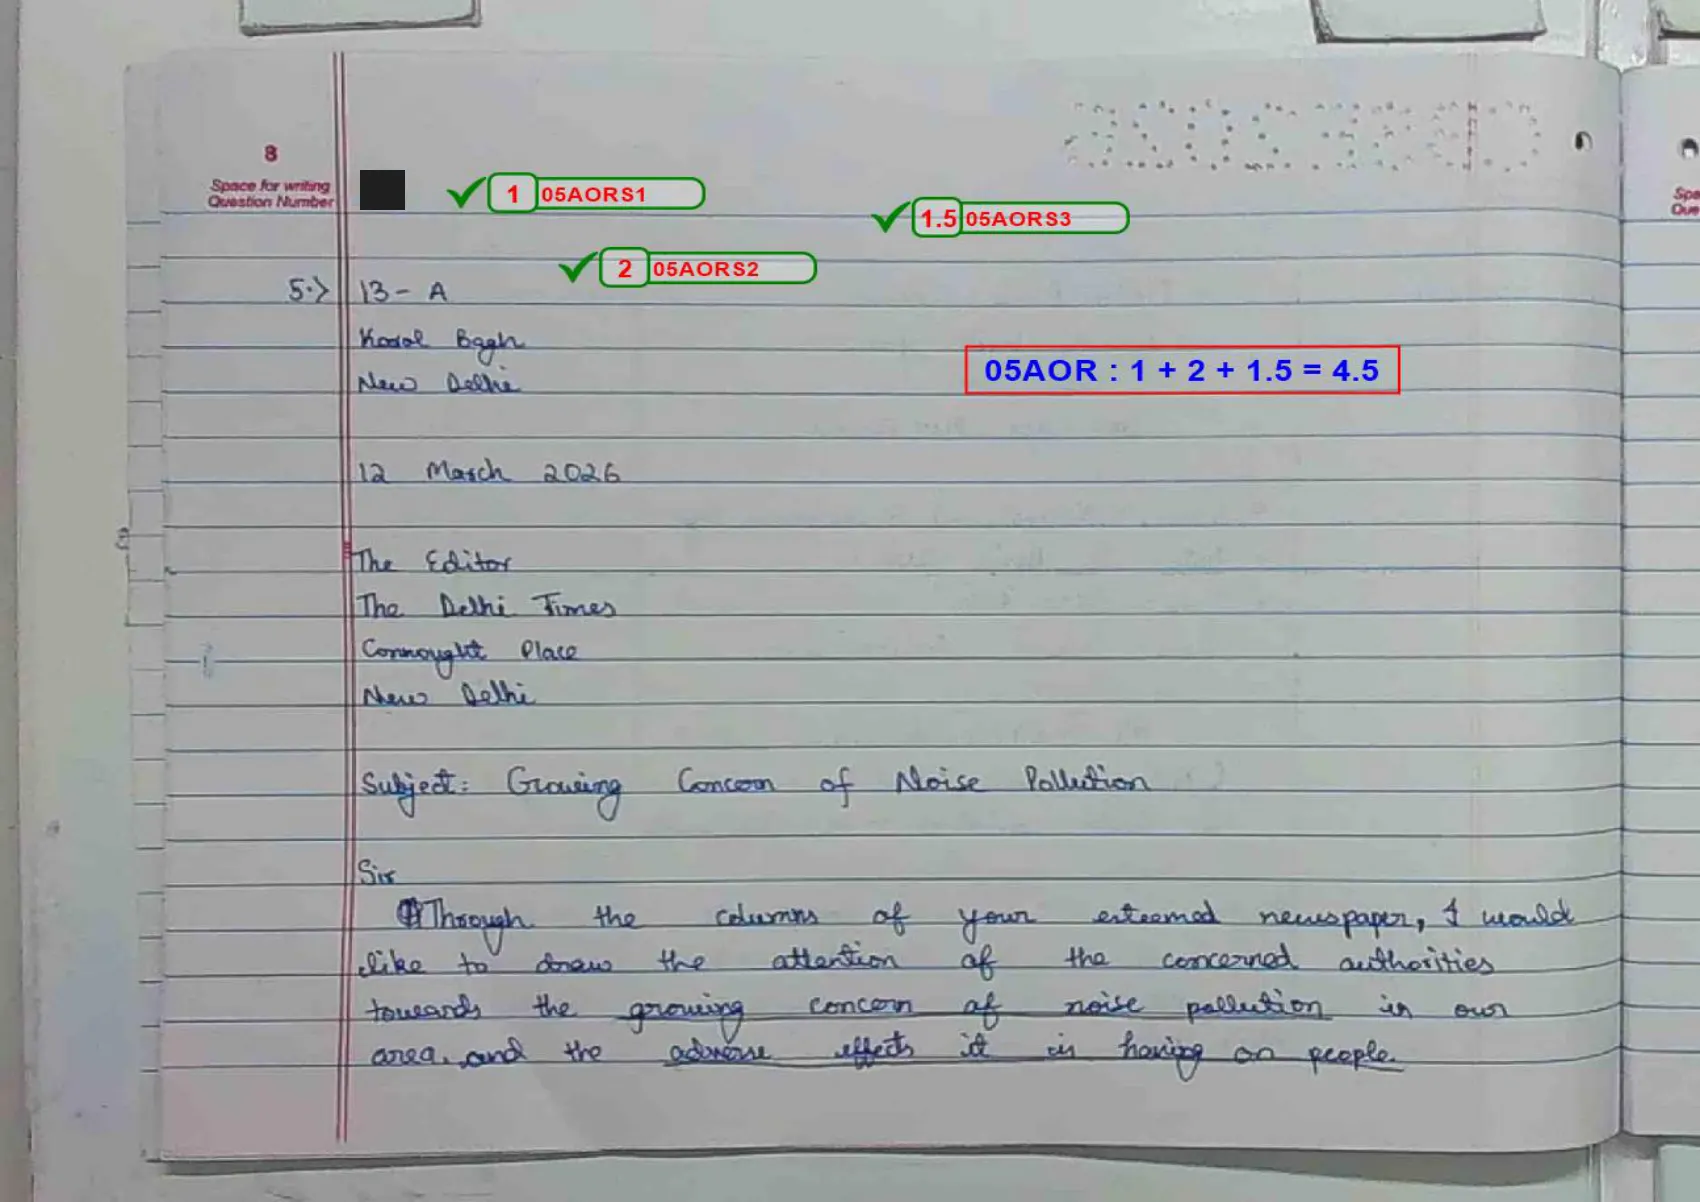 8
Space for writing
Question Number
1 05AORS1
1.5 05AORS3
2 05AORS2
5.> 13 - A
Kosol Bagh
New Delhi
05AOR : 1 + 2 + 1.5 = 4.5
12 March 2026
The Editor
The Delhi Times
Connought Place
New Delhi
Subject: Growing Concern of Noise Pollution
Sir
Through the columns of your esteemed newspaper, I would
like to draw the attention of the concerned authorities
towards the growing concern of noise pollution in our
area, and the adverse effects it is having on people.